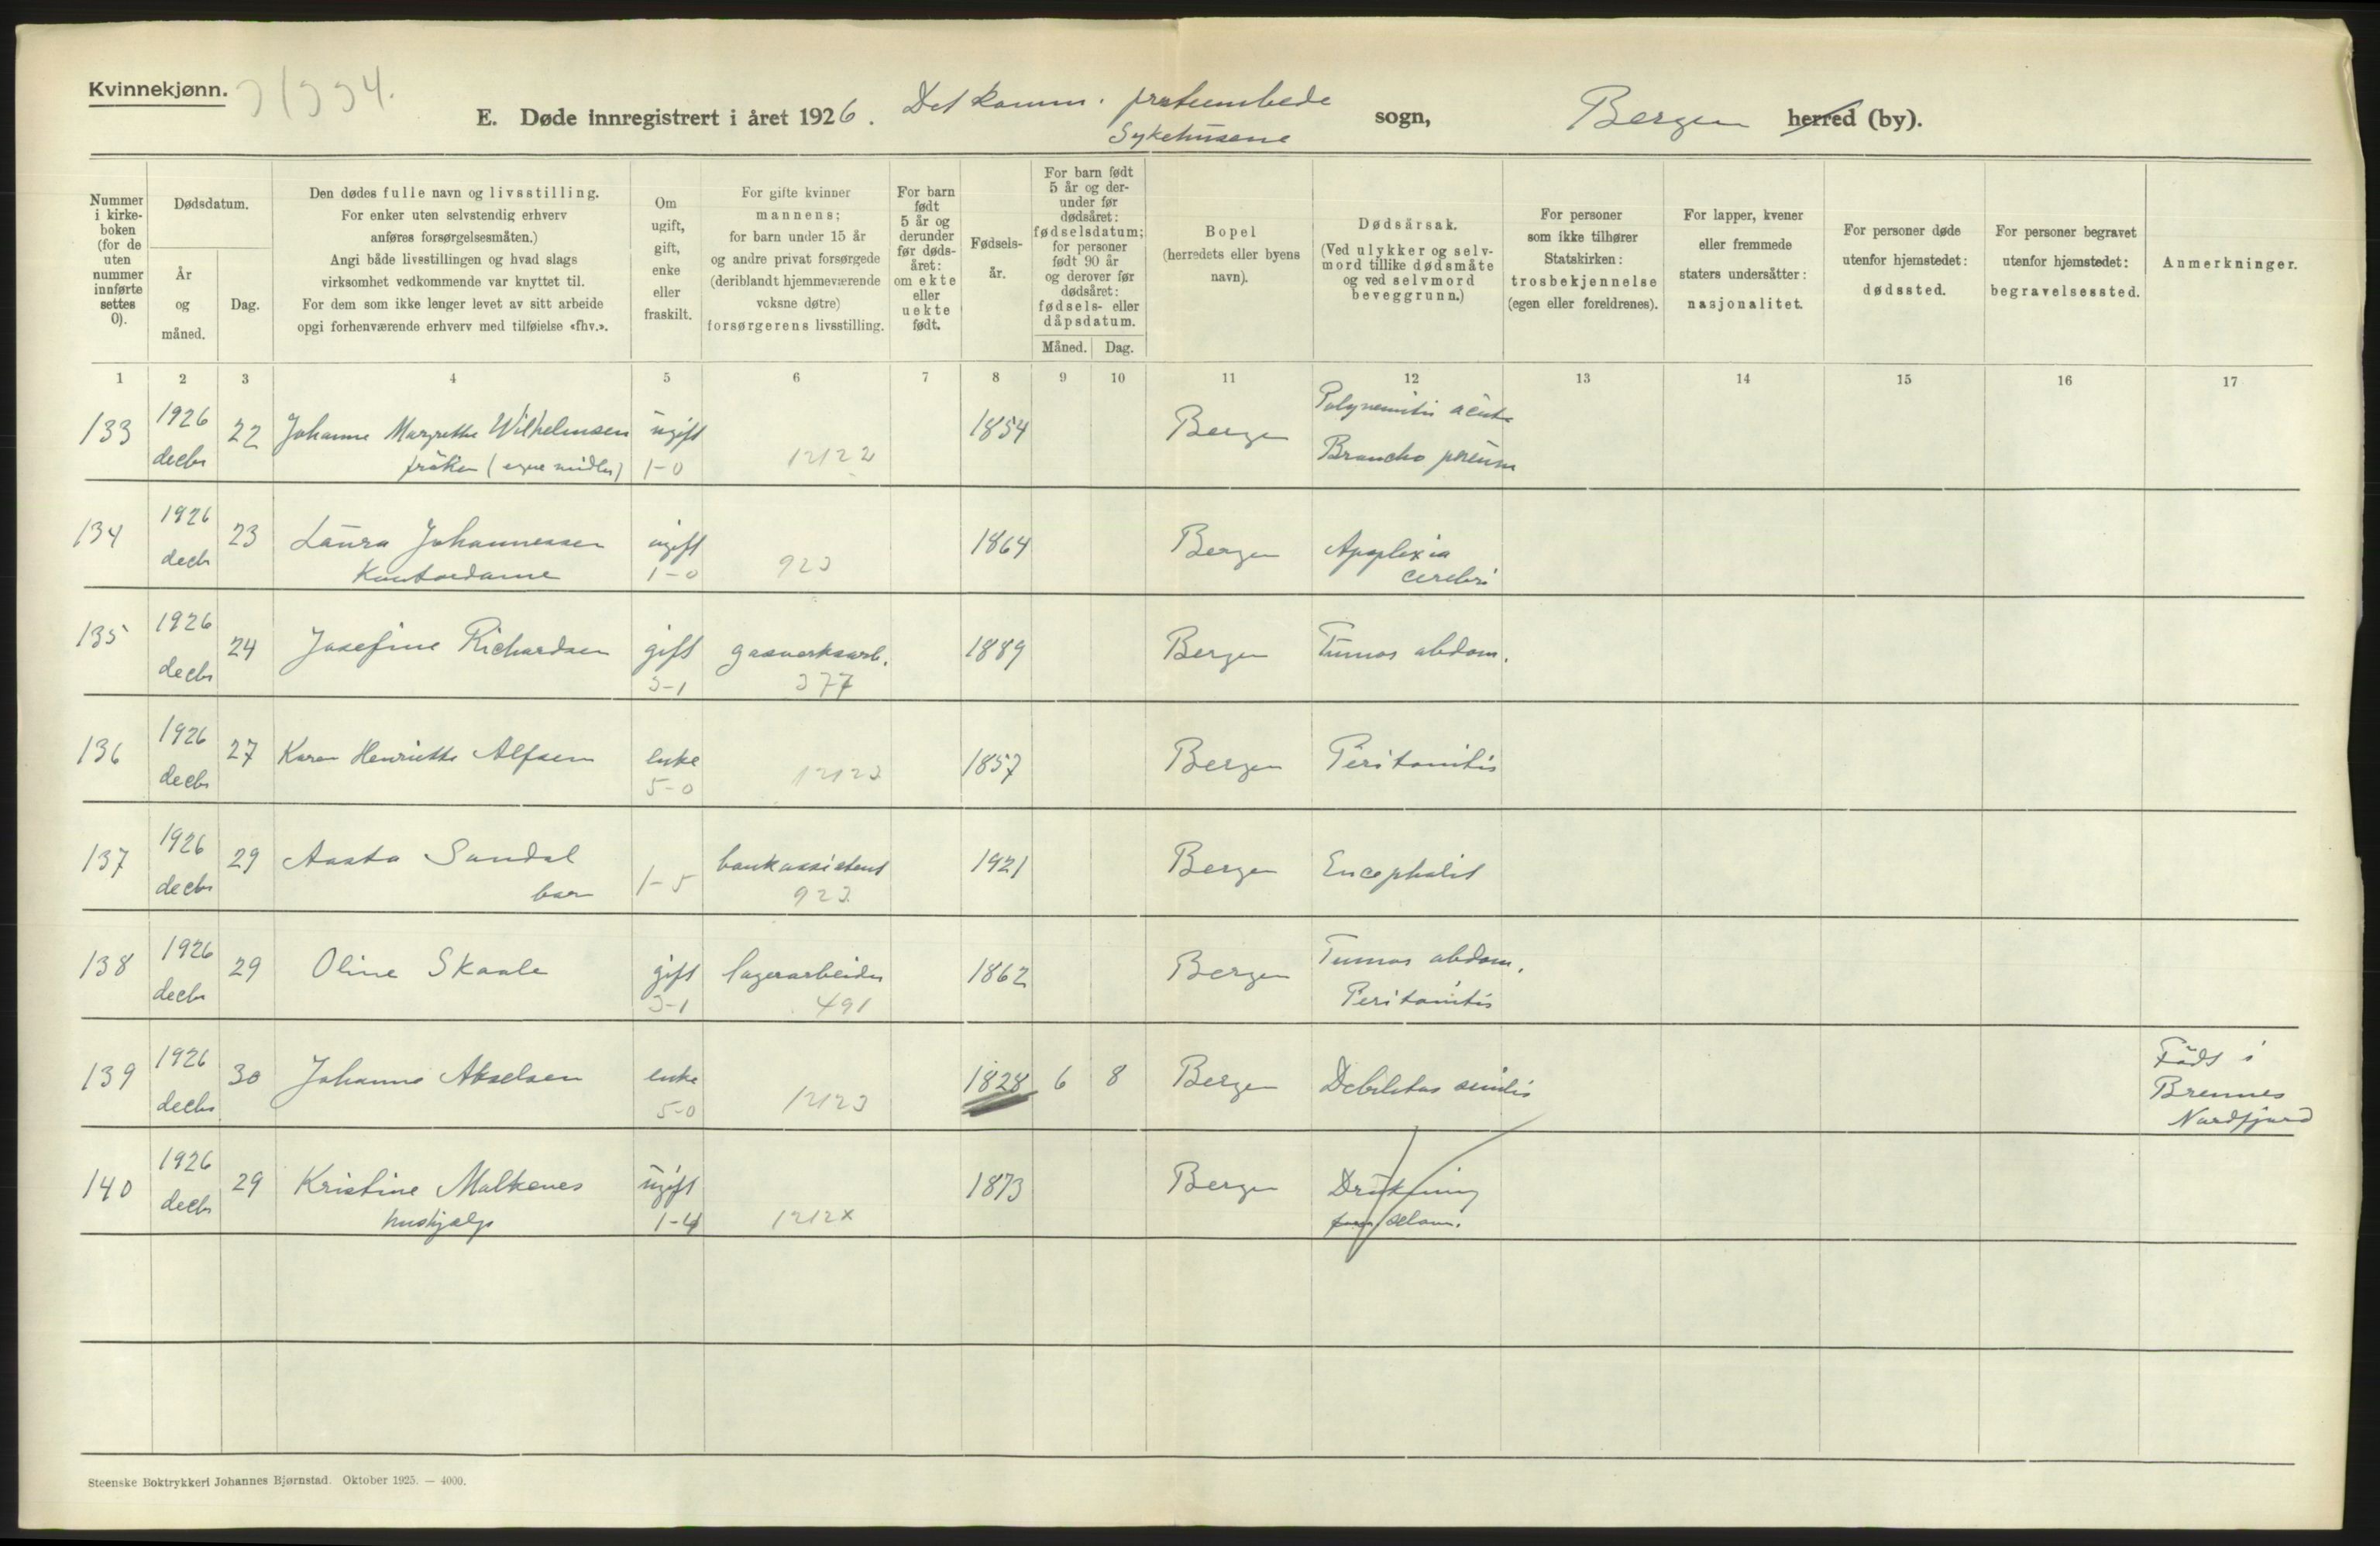 Kvinnekjønn.
E. Døde innregistrert i året 1926. Det komm. presteembede sogn, Bergen herred (by).
Sykehusene
Nummer i kirke-boken (for de uten nummer innførte settes 0).
Dødsdatum.
År og måned.
Dag.
Den dødes fulle navn og livsstilling.
For enker uten selvstendig erhverv
anføres forsørgelsesmåten.)
Angi både livsstillingen og hvad slags
virksomhet vedkommende var knyttet til.
For dem som ikke lenger levet av sitt arbeide
opgi forhenværende erhverv med tilføielse «fhv.».
Om ugift, gift, enke eller fraskilt.
For gifte kvinner
mannens;
for barn under 15 år
og andre privat forsørgede
(deriblandt hjemmeværende
voksne døtre)
forsørgerens livsstilling.
For barn født 5 år og derunder før døds-året: om ekte eller uekte født.
Fødsels-år.
For barn født
5 år og der-
under før
dødsåret:
fødselsdatum;
for personer
født 90 år
og derover før
dødsåret:
fødsels- eller
dåpsdatum.
Måned. Dag.
Bopel
(herredets eller byens
navn).
Dødsårsak.
(Ved ulykker og selv-
mord tillike dødsmåte
og ved selvmord
beveggrunn.)
For personer
som ikke tilhører
Statskirken:
trosbekjennelse
(egen eller foreldrenes).
For lapper, kvener
eller fremmede
staters undersåtter:
nasjonalitet.
For personer døde
utenfor hjemstedet:
dødssted.
For personer begravet
utenfor hjemstedet:
begravelsessted.
Anmerkninger.
1 2 3 4 5 6 7 8 9 10 11 12 13 14 15 16 17
133 1926 decbr 22 Johanne Margrethe Wilhelmsen ugift 1854 Bergen
frøken (egne midler) 1-0 12122 Broncho pneum
134 1926 decbr 23 Laura Johannessen ugift 1864 Bergen Apoplexia
Kontordame 1-0 923 cerebri
135 1926 decbr 24 Josefine Richardsen gift gasverksarb. 1889 Bergen Tumor abdom.
3-1 377
136 1926 decbr 27 Karen Henriette Alfsen enke 1857 Bergen Peritonitis
5-0 12123
137 1926 decbr 29 Aasta Sandal bankassistent 1921 Bergen Encephalit
barn 1-5 923
138 1926 decbr 29 Oline Skaale gift lagerarbeider 1862 Bergen Tumor abdom.
3-1 491 Peritonitis
139 1926 decbr 30 Johanne Akselsen enke 1828 6 8 Bergen Debilitas senilis Født i
5-0 12123 Brennes
Nordfjord
140 1926 decbr 29 Kristine Malkenes ugift 1873 Bergen Drukning
hushjælp 1-4 1212x
Steenske Boktrykkeri Johannes Bjørnstad. Oktober 1925. — 4000.